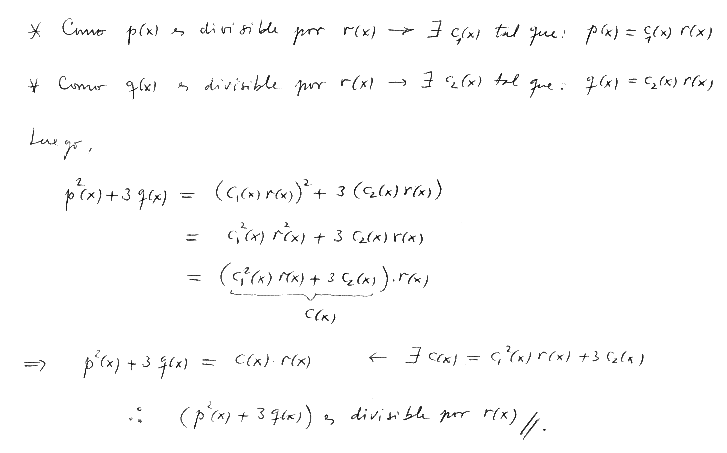 * Como p(x) es divisible por r(x) → ∃ c₁(x) tal que: p(x) = c₁(x) r(x)
* Como q(x) es divisible por r(x) → ∃ c₂(x) tal que: q(x) = c₂(x) r(x)
Luego,
p²(x) + 3 q(x) = (c₁(x) r(x))² + 3 (c₂(x) r(x))
= c₁²(x) r²(x) + 3 c₂(x) r(x)
= (c₁²(x) r(x) + 3 c₂(x)) . r(x)
C(x)
⇒ p²(x) + 3 q(x) = C(x) . r(x) ← ∃ C(x) = c₁²(x) r(x) + 3 c₂(x)
∴ (p²(x) + 3 q(x)) es divisible por r(x) //.